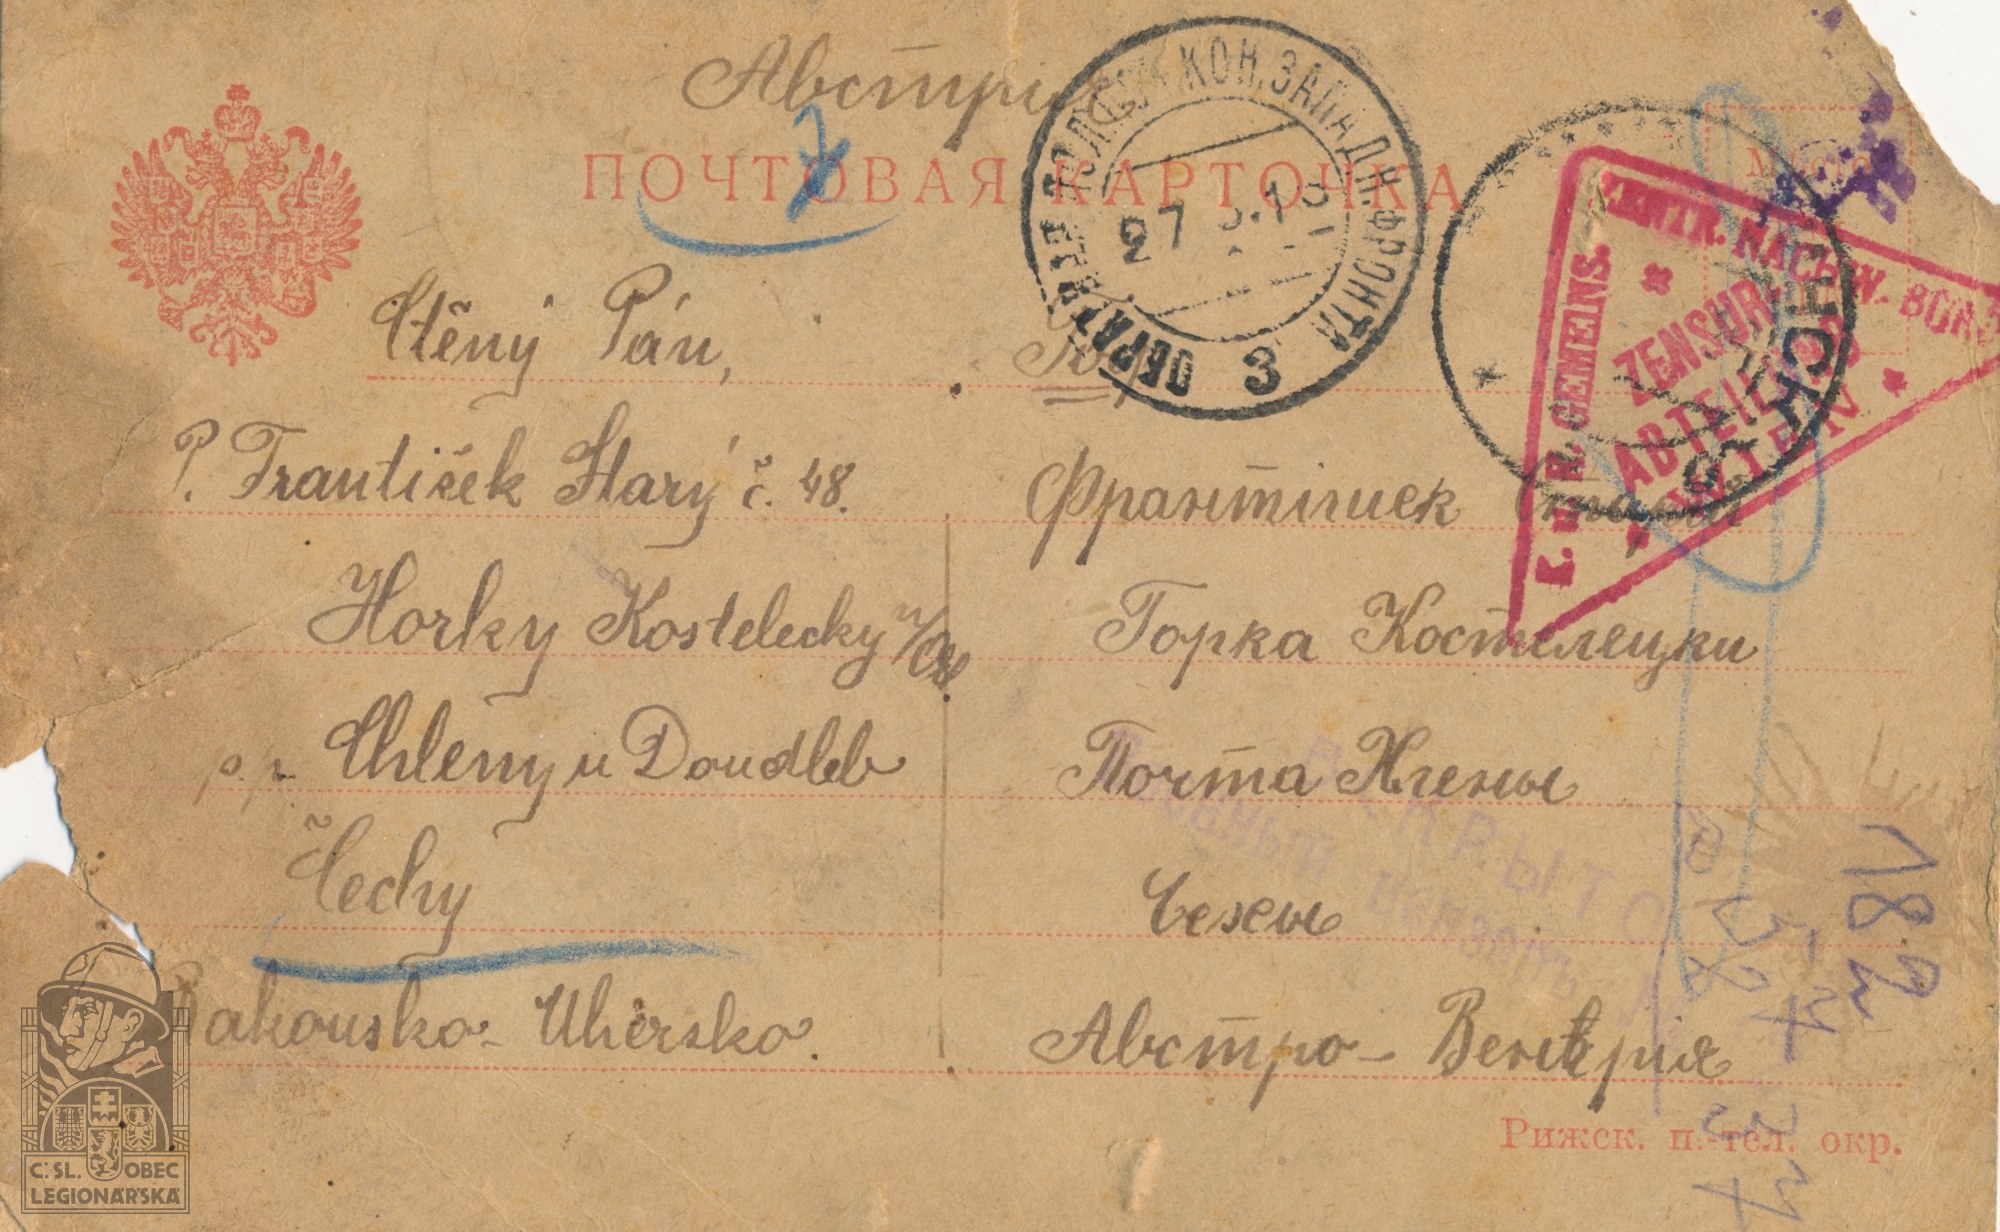 ПОЧТОВАЯ КАРТОЧКА
27
ЗАПАДН. ФРОНТА
3
K. u. K. GEMEINS. ZENTR. NACHW. BÜRO
ZENSUR
ABTEILUNG
Ctěný Pán,
P. František Starý č. 48.
Horky Kostelecky n/Orl
p. p. Chleny u Doudleb
Čechy
Rakousko-Uhersko.
Франтішек Старий
Горка Костелецки
Почта Хлены
Чехы
Австро-Венгрія
ВСКРЫТО
Военный цензоръ
182
Рижск. п.-тел. окр.
Č.SL. OBEC
LEGIONÁŘSKÁ